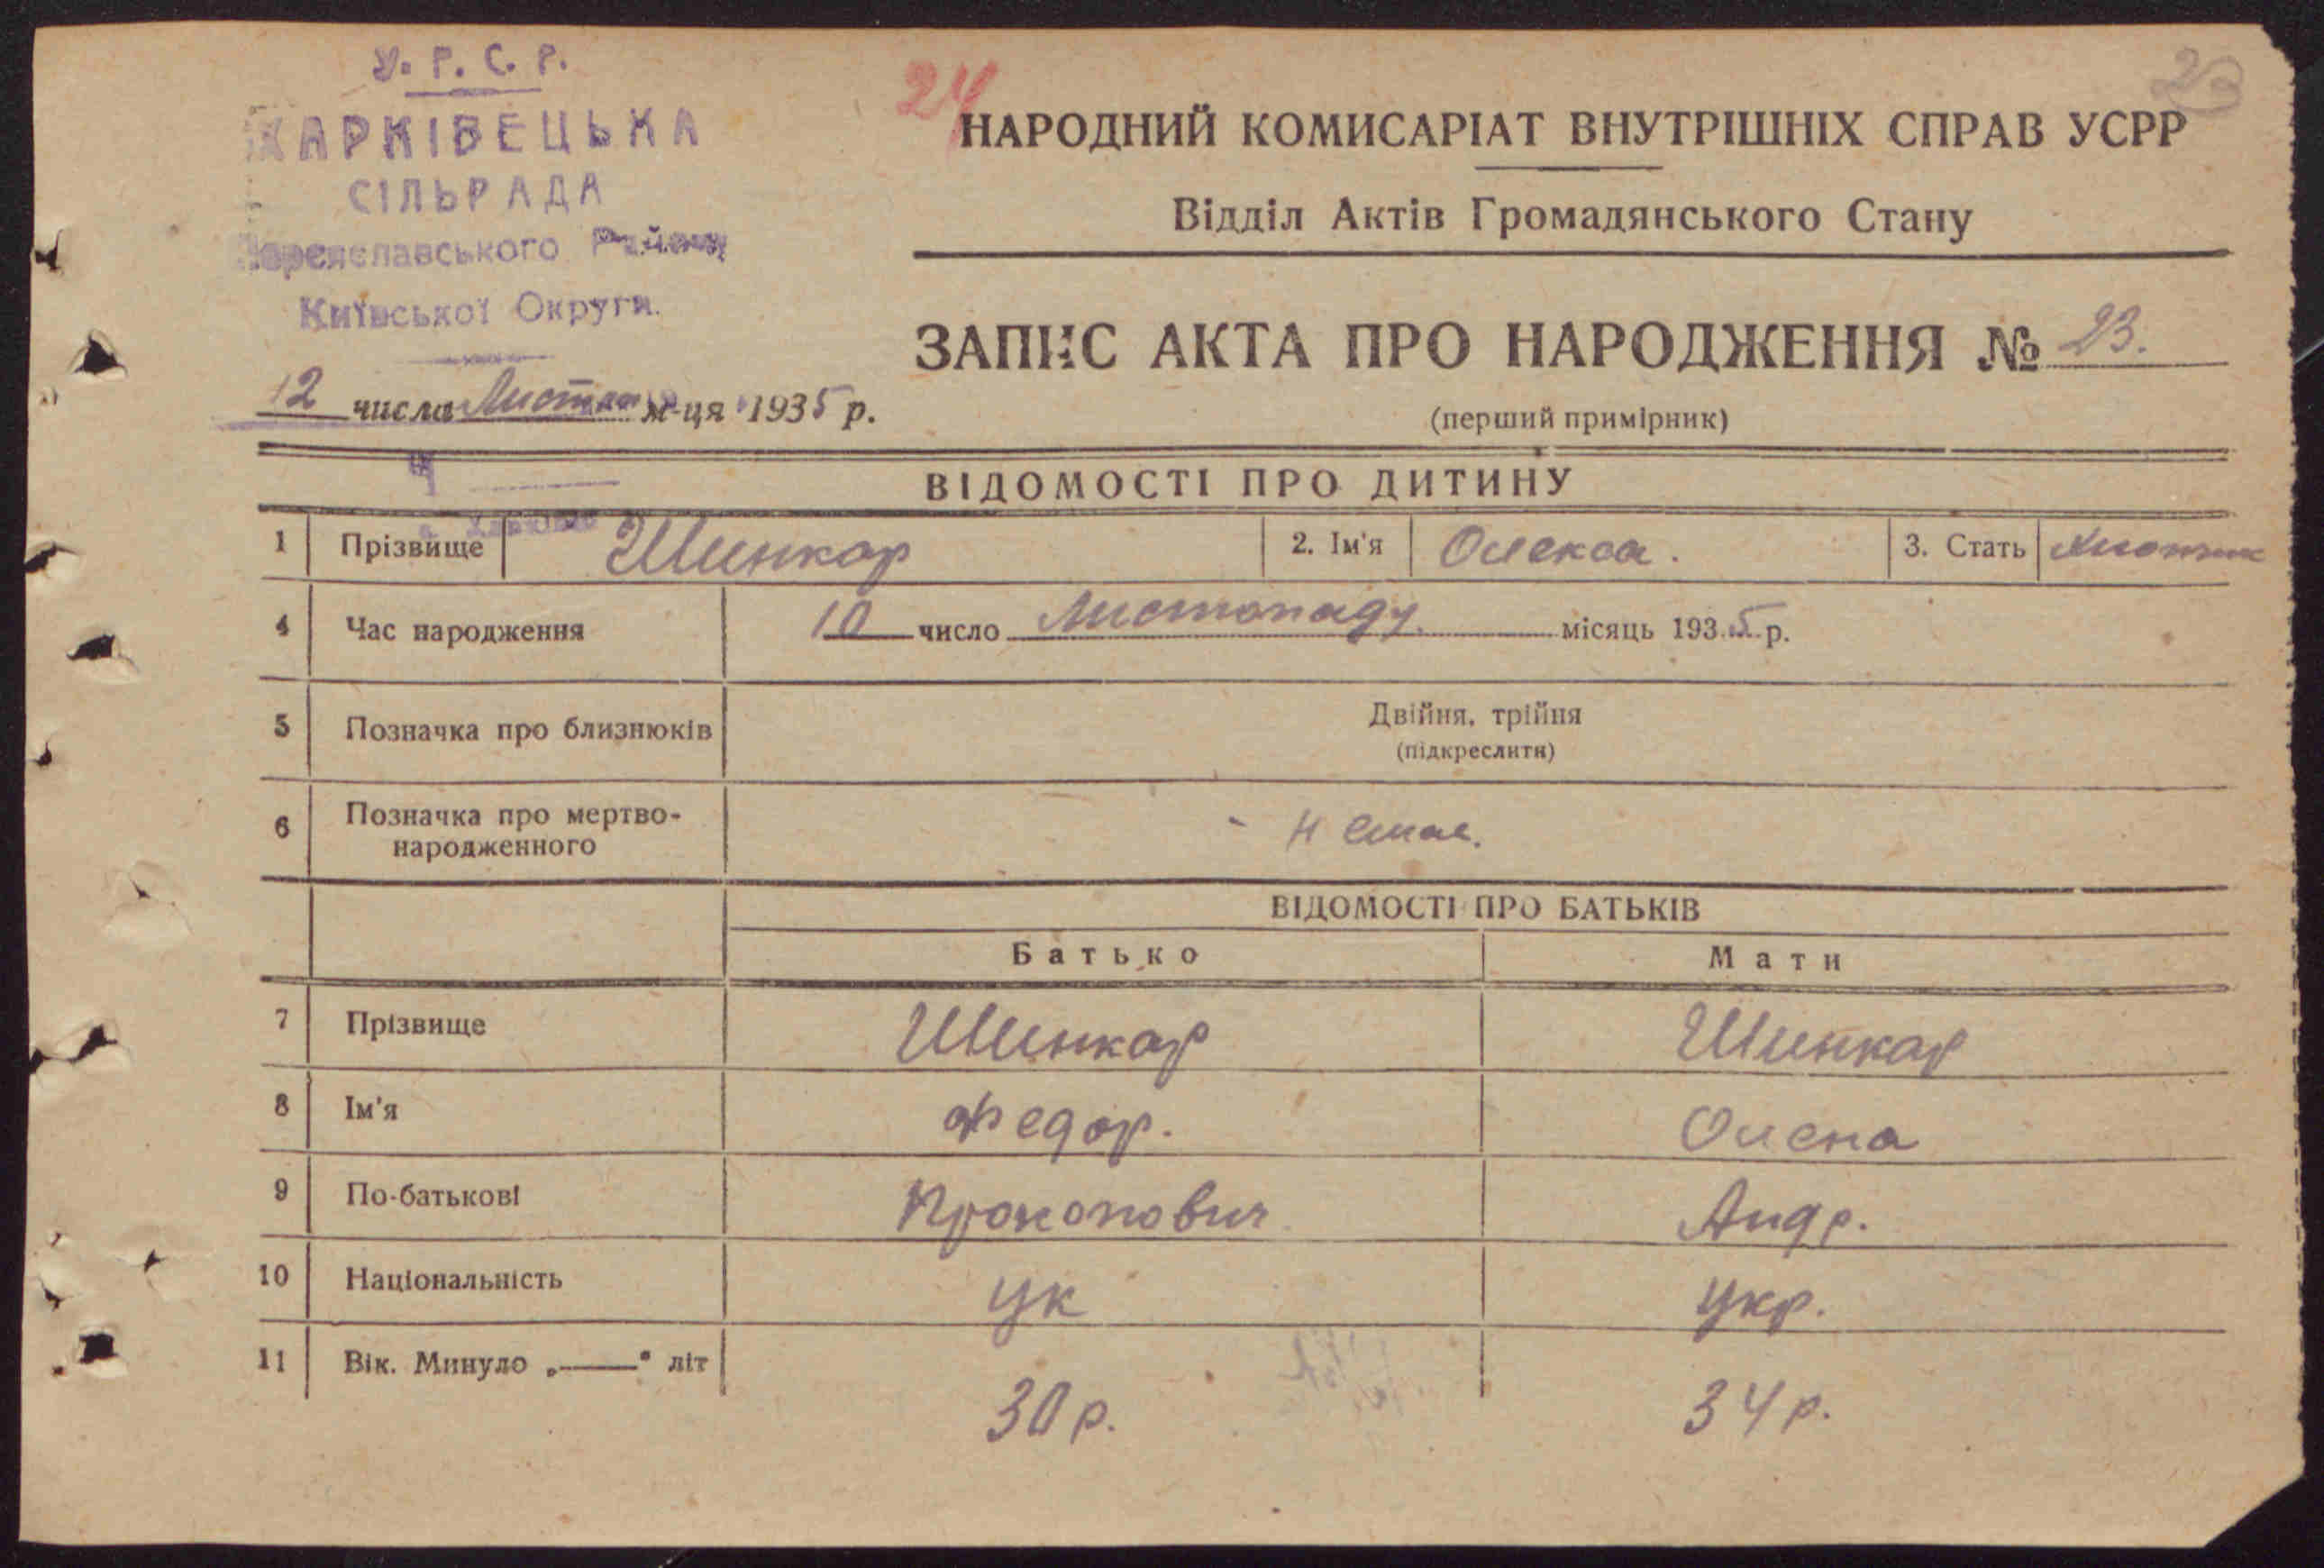 У. Р. С. Р.
ХАРКІВЕЦЬКА
СІЛЬРАДА
Переяславського Району
Київської Округи.
12 числа Листоп м-ця 1935 р.
24
23
НАРОДНИЙ КОМИСАРІАТ ВНУТРІШНІХ СПРАВ УСРР
Відділ Актів Громадянського Стану
ЗАПИС АКТА ПРО НАРОДЖЕННЯ № 23.
(перший примірник)
ВІДОМОСТІ ПРО ДИТИНУ
1 Прізвище Шинкар 2. Ім'я Олекса. 3. Стать Хлопчик
4 Час народження 10 число Листопаду місяць 1935 р.
5 Позначка про близнюків Двійня, трійня
(підкреслити)
6 Позначка про мертво-
народженного - Немає.
ВІДОМОСТІ ПРО БАТЬКІВ
Батько Мати
7 Прізвище Шинкар Шинкар
8 Ім'я Федор. Олена
9 По-батькові Прокопович Андр.
10 Національність Ук Укр.
11 Вік. Минуло „——“ літ 30 р. 34 р.